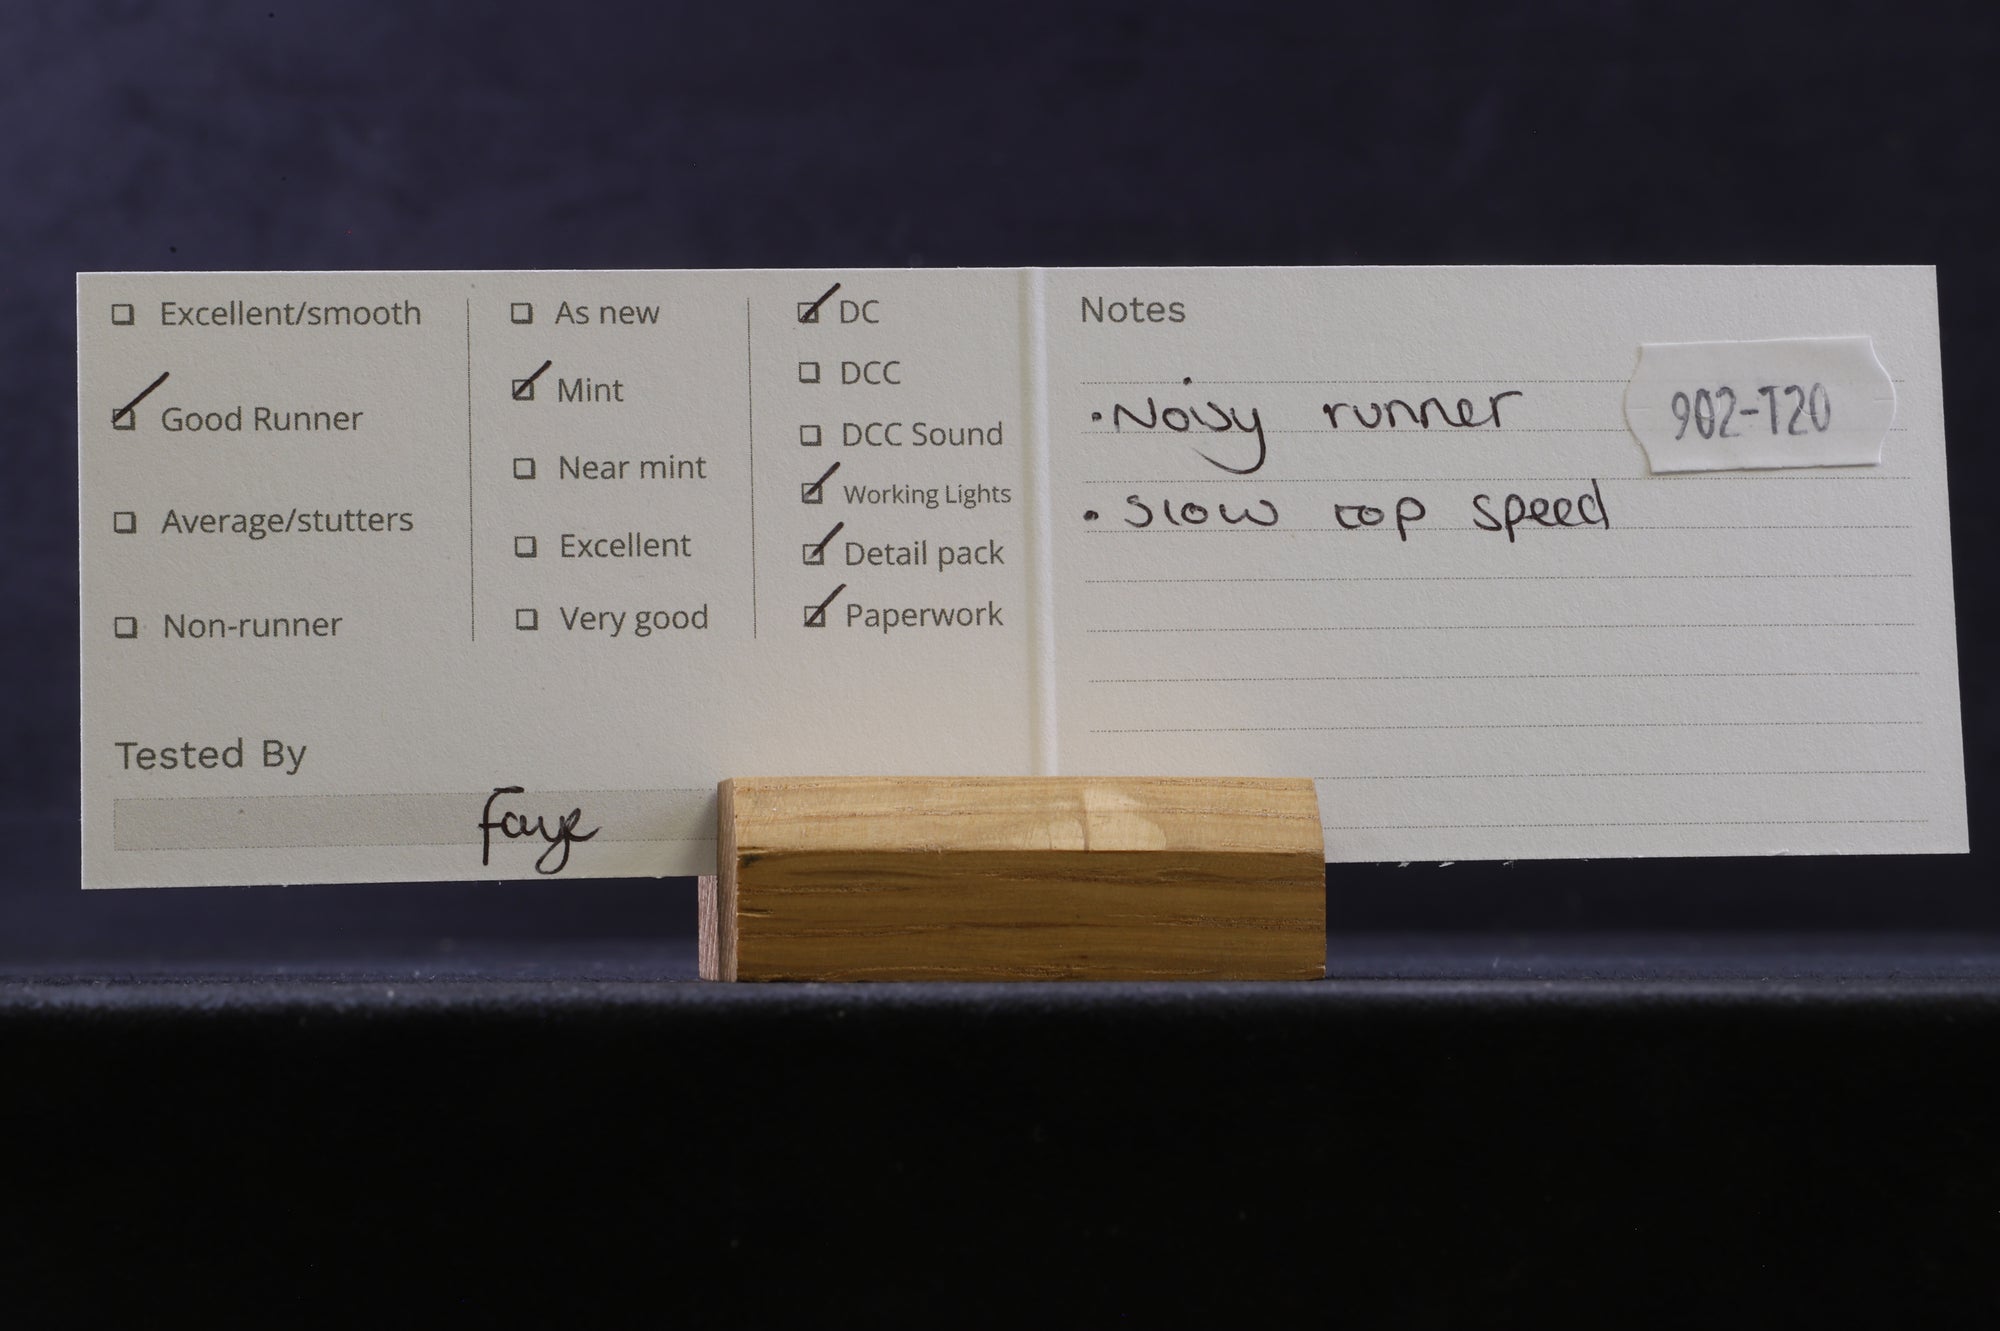 ☐ Excellent/smooth
☑ Good Runner
☐ Average/stutters
☐ Non-runner
☐ As new
☑ Mint
☐ Near mint
☐ Excellent
☐ Very good
☑ DC
☐ DCC
☐ DCC Sound
☑ Working Lights
☑ Detail pack
☑ Paperwork
Tested By
Faye
Notes
902-T20
• Noisy runner
• Slow top speed